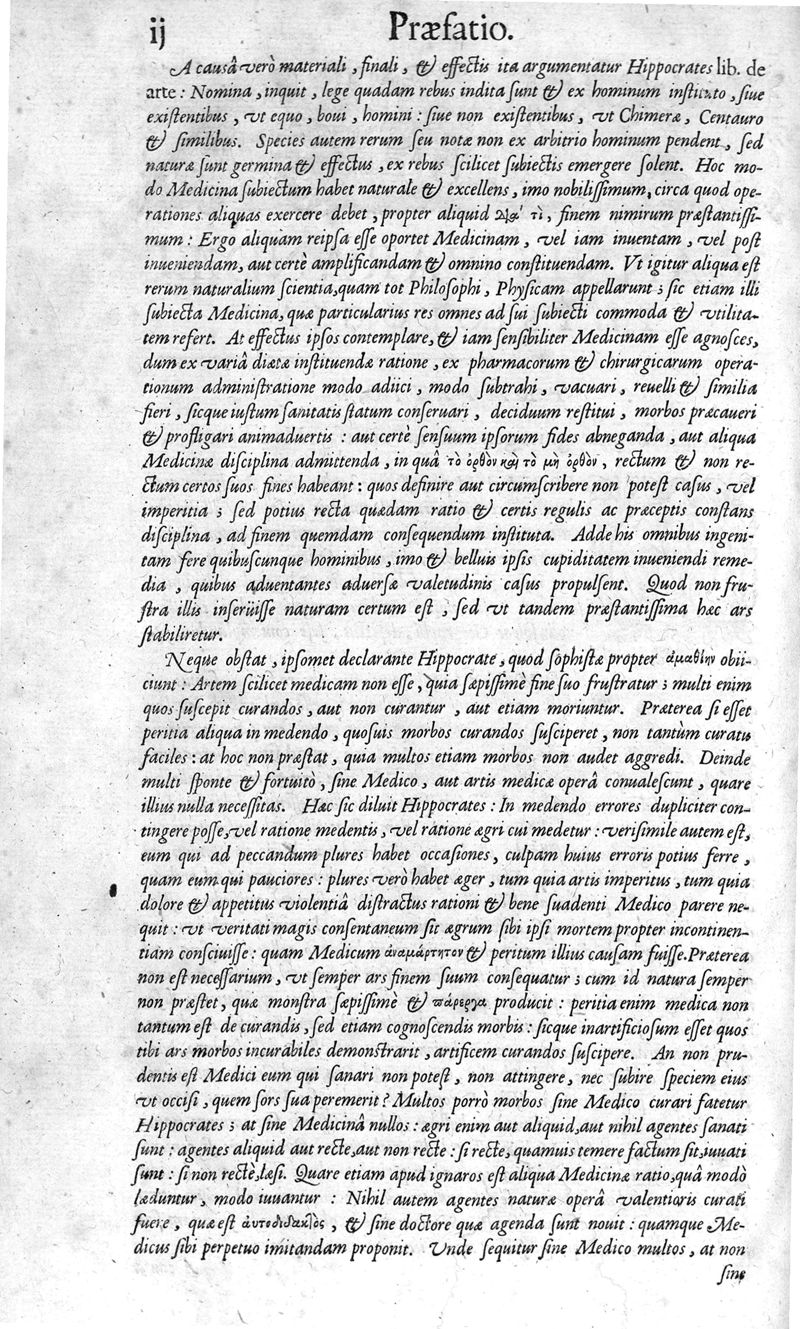 ij
Præfatio.
A causâ verò materiali, finali, & effectis ita argumentatur Hippocrates lib. de
arte: Nomina, inquit, lege quadam rebus indita ſunt & ex hominum inſtituto, ſiue
exiſtentibus, vt equo, boui, homini: ſiue non exiſtentibus, vt Chimeræ, Centauro
& ſimilibus. Species autem rerum ſeu notæ non ex arbitrio hominum pendent, ſed
naturæ ſunt germina & effectus, ex rebus ſcilicet ſubiectis emergere ſolent. Hoc mo-
do Medicina ſubiectum habet naturale & excellens, imo nobiliſſimum, circa quod ope-
rationes aliquas exercere debet, propter aliquid τὶ, finem nimirum præſtantiſſi-
mum: Ergo aliquam reipſa eſſe oportet Medicinam, vel iam inuentam, vel poſt
inueniendam, aut certè amplificandam & omnino conſtituendam. Vt igitur aliqua eſt
rerum naturalium ſcientia, quam tot Philoſophi, Phyſicam appellarunt; ſic etiam illi
ſubiecta Medicina, quæ particularius res omnes ad ſui ſubiecti commoda & vtilita-
tem refert. At effectus ipſos contemplare, & iam ſenſibiliter Medicinam eſſe agnoſces,
dum ex variâ diætæ inſtituendæ ratione, ex pharmacorum & chirurgicarum opera-
tionum adminiſtratione modo adiici, modo ſubtrahi, vacuari, reuelli & ſimilia
fieri, ſicque iuſtum ſanitatis ſtatum conſeruari, deciduum reſtitui, morbos præcaueri
& profligari animaduertis: aut certè ſenſuum ipſorum fides abneganda, aut aliqua
Medicinæ diſciplina admittenda, in quâ τὸ ὀρθὸν καὶ τὸ μὴ ὀρθὸν, rectum & non re-
ctum certos ſuos fines habeant: quos definire aut circumſcribere non poteſt caſus, vel
imperitia; ſed potius recta quædam ratio & certis regulis ac præceptis conſtans
diſciplina, ad finem quemdam conſequendum inſtituta. Adde his omnibus ingeni-
tam fere quibuſcunque hominibus, imo & belluis ipſis cupiditatem inueniendi reme-
dia, quibus aduentantes aduerſæ valetudinis caſus propulſent. Quod non fru-
ſtra illis inſeruiſſe naturam certum eſt, ſed vt tandem præſtantiſſima hæc ars
ſtabiliretur.
Neque obſtat, ipſomet declarante Hippocrate, quod ſophiſtæ propter ἀμαθίην obii-
ciunt: Artem ſcilicet medicam non eſſe, quia ſæpiſſimè fine ſuo fruſtratur; multi enim
quos ſuſcepit curandos, aut non curantur, aut etiam moriuntur. Præterea ſi eſſet
peritia aliqua in medendo, quoſuis morbos curandos ſuſciperet, non tantùm curatu
faciles: at hoc non præſtat, quia multos etiam morbos non audet aggredi. Deinde
multi ſponte & fortuitò, ſine Medico, aut artis medicæ operâ conualeſcunt, quare
illius nulla neceſſitas. Hæc ſic diluit Hippocrates: In medendo errores dupliciter con-
tingere poſſe, vel ratione medentis, vel ratione ægri cui medetur: veriſimile autem eſt,
eum qui ad peccandum plures habet occaſiones, culpam huius erroris potius ferre,
quam eum qui pauciores: plures verò habet æger, tum quia artis imperitus, tum quia
dolore & appetitus violentiâ diſtractus rationi & bene ſuadenti Medico parere ne-
quit: vt veritati magis conſentaneum ſit ægrum ſibi ipſi mortem propter incontinen-
tiam conſciuiſſe: quam Medicum ἀναμάρτητον & peritum illius cauſam fuiſſe. Præterea
non eſt neceſſarium, vt ſemper ars finem ſuum conſequatur; cum id natura ſemper
non præſtet, quæ monſtra ſæpiſſimè & πάρεργα producit: peritia enim medica non
tantum eſt de curandis, ſed etiam cognoſcendis morbis: ſicque inartificioſum eſſet quos
tibi ars morbos incurabiles demonſtrarit, artificem curandos ſuſcipere. An non pru-
dentis eſt Medici eum qui ſanari non poteſt, non attingere, nec ſubire ſpeciem eius
vt occiſi, quem ſors ſua peremerit? Multos porrò morbos ſine Medico curari fatetur
Hippocrates; at ſine Medicinâ nullos: ægri enim aut aliquid, aut nihil agentes ſanati
ſunt: agentes aliquid aut recte, aut non recte: ſi recte, quamuis temere factum ſit, iuuati
ſunt: ſi non rectè, læſi. Quare etiam apud ignaros eſt aliqua Medicinæ ratio, quâ modò
læduntur, modo iuuantur: Nihil autem agentes naturæ operâ valentioris curati
fuere, quæ eſt αὐτοδίδακτος, & ſine doctore quæ agenda ſunt nouit: quamque Me-
dicus ſibi perpetuo imitandam proponit. Vnde ſequitur ſine Medico multos, at non
ſine